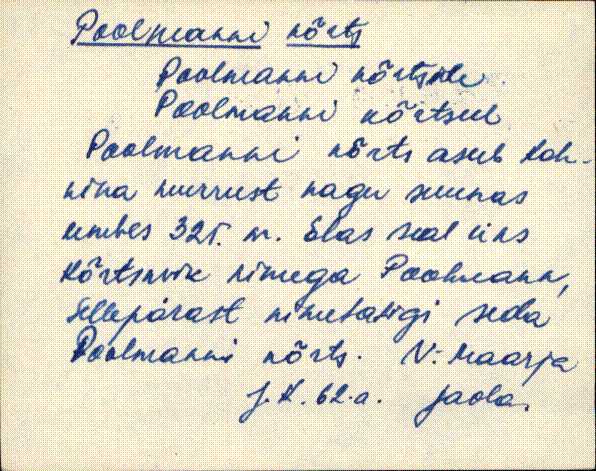 Poolmanni kõrts
Poolmanni kõrtsile
Poolmanni kõrtsul
Poolmanni kõrts asub Koh-
nina nurrust kagu suunas
umbes 325. m. Elas seal üks
Kõrtsmik nimega Poolmann,
Sellepärast nimetatigi seda
Poolmanni kõrts. V-Maarja
J. K. 62.a. Jaola.